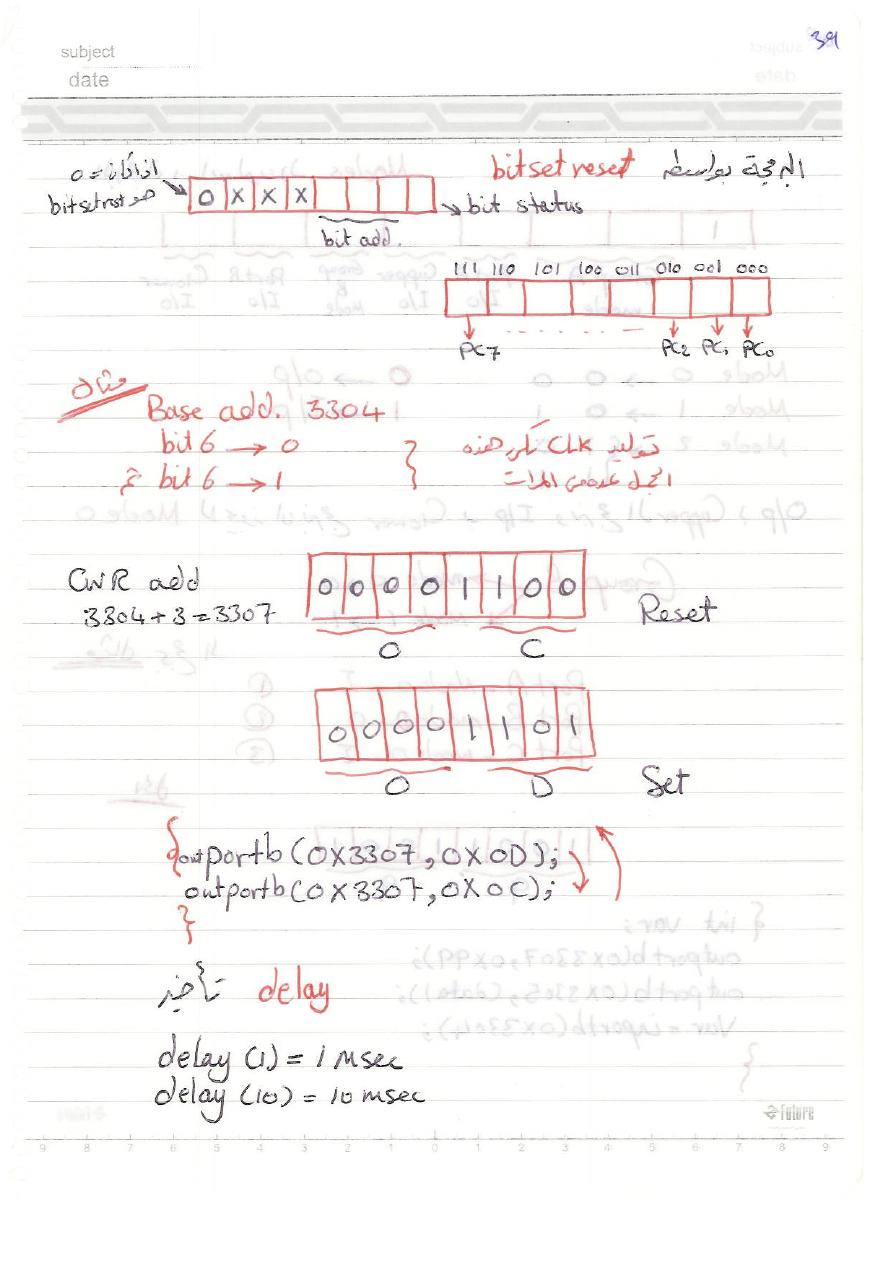 subject
date
39
البرمجة بواسطة bit set reset
اذا كان = 0
هو bit set rest
0 X X X
bit status
bit add.
111 110 101 100 011 010 001 000
PC7 ....... PC2 PC1 PC0
مثال
Base add. 3304
bit 6 → 0
ثم bit 6 → 1
توليد CLK نكرر هذه
الجمل عدد من المرات
CWR add
3304 + 3 = 3307
0 0 0 0 1 1 0 0
Reset
0 C
0 0 0 0 1 1 0 1
Set
0 D
{outportb (0X3307, 0X0D);
outportb (0X3307, 0X0C);
}
تأخير delay
delay (1) = 1 msec
delay (10) = 10 msec
future
9 8 7 6 5 4 3 2 1 0 1 2 3 4 5 6 7 8 9